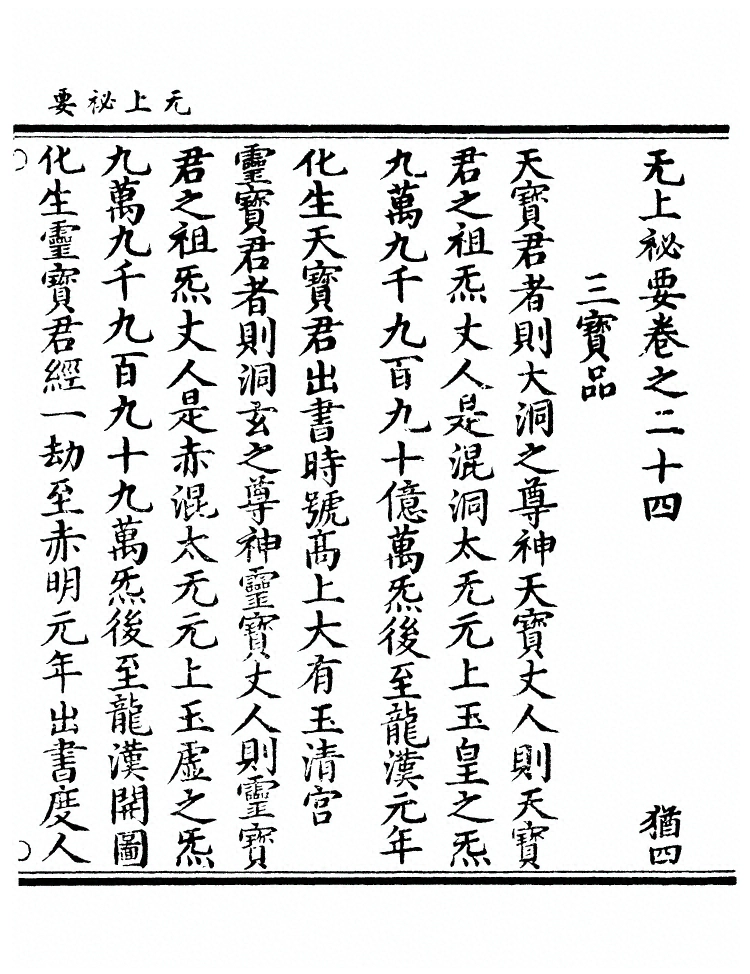 无上祕要
无上祕要卷之二十四　猶四
三寶品
天寶君者則大洞之尊神天寶丈人則天寶
君之祖炁丈人是混洞太无元上玉皇之炁
九萬九千九百九十億萬炁後至龍漢元年
化生天寶君出書時號髙上大有玉清宫
靈寶君者則洞玄之尊神靈寶丈人則靈寶
君之祖炁丈人是赤混太无元上玉虛之炁
九萬九千九百九十九萬炁後至龍漢開圖
化生靈寶君經一劫至赤明元年出書度人